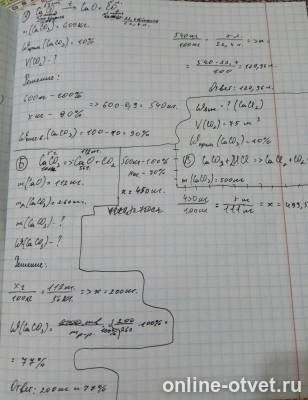 CaCO₃ = CaO + CO₂
m(CaCO₃) = 600кг.
Wприм(CaCO₃) = 10%
V(CO₂) - ?
Решение:
600кг - 100%
x кг - 90%
=> 600·0,9 = 540кг.
Wчист.(CaCO₃) = 100-10 = 90%
540кг / 100кг = x л. / 22,4 л. => x =
= 540·22,4 / 100 = 120,96 л.
Ответ: 120,96 л.
Б) CaCO₃ => CaO + CO₂
112кг.
56кг.
m(CaO) = 112кг.
m(CaCO₃) = 260кг
m(CaCO₃) - ?
W(CaCO₃) - ?
Решение:
x г / 100кг = 112кг / 56кг => x = 200кг.
W(CaCO₃) = 200 / 260 100% =
= 77%
Ответ: 200кг и 77%
500кг - 100%
x кг - 90%
x = 450кг.
W - ? (CaCO₃)
V(CO₂) = 75 м³
W(CaCO₃) - 10%
В) CaCO₃ + 2HCl => CaCl₂ + CO₂
m(CaCO₃) = 500кг
450кг / 100кг = x кг / 111кг => x = 499,5
online-otvet.ru